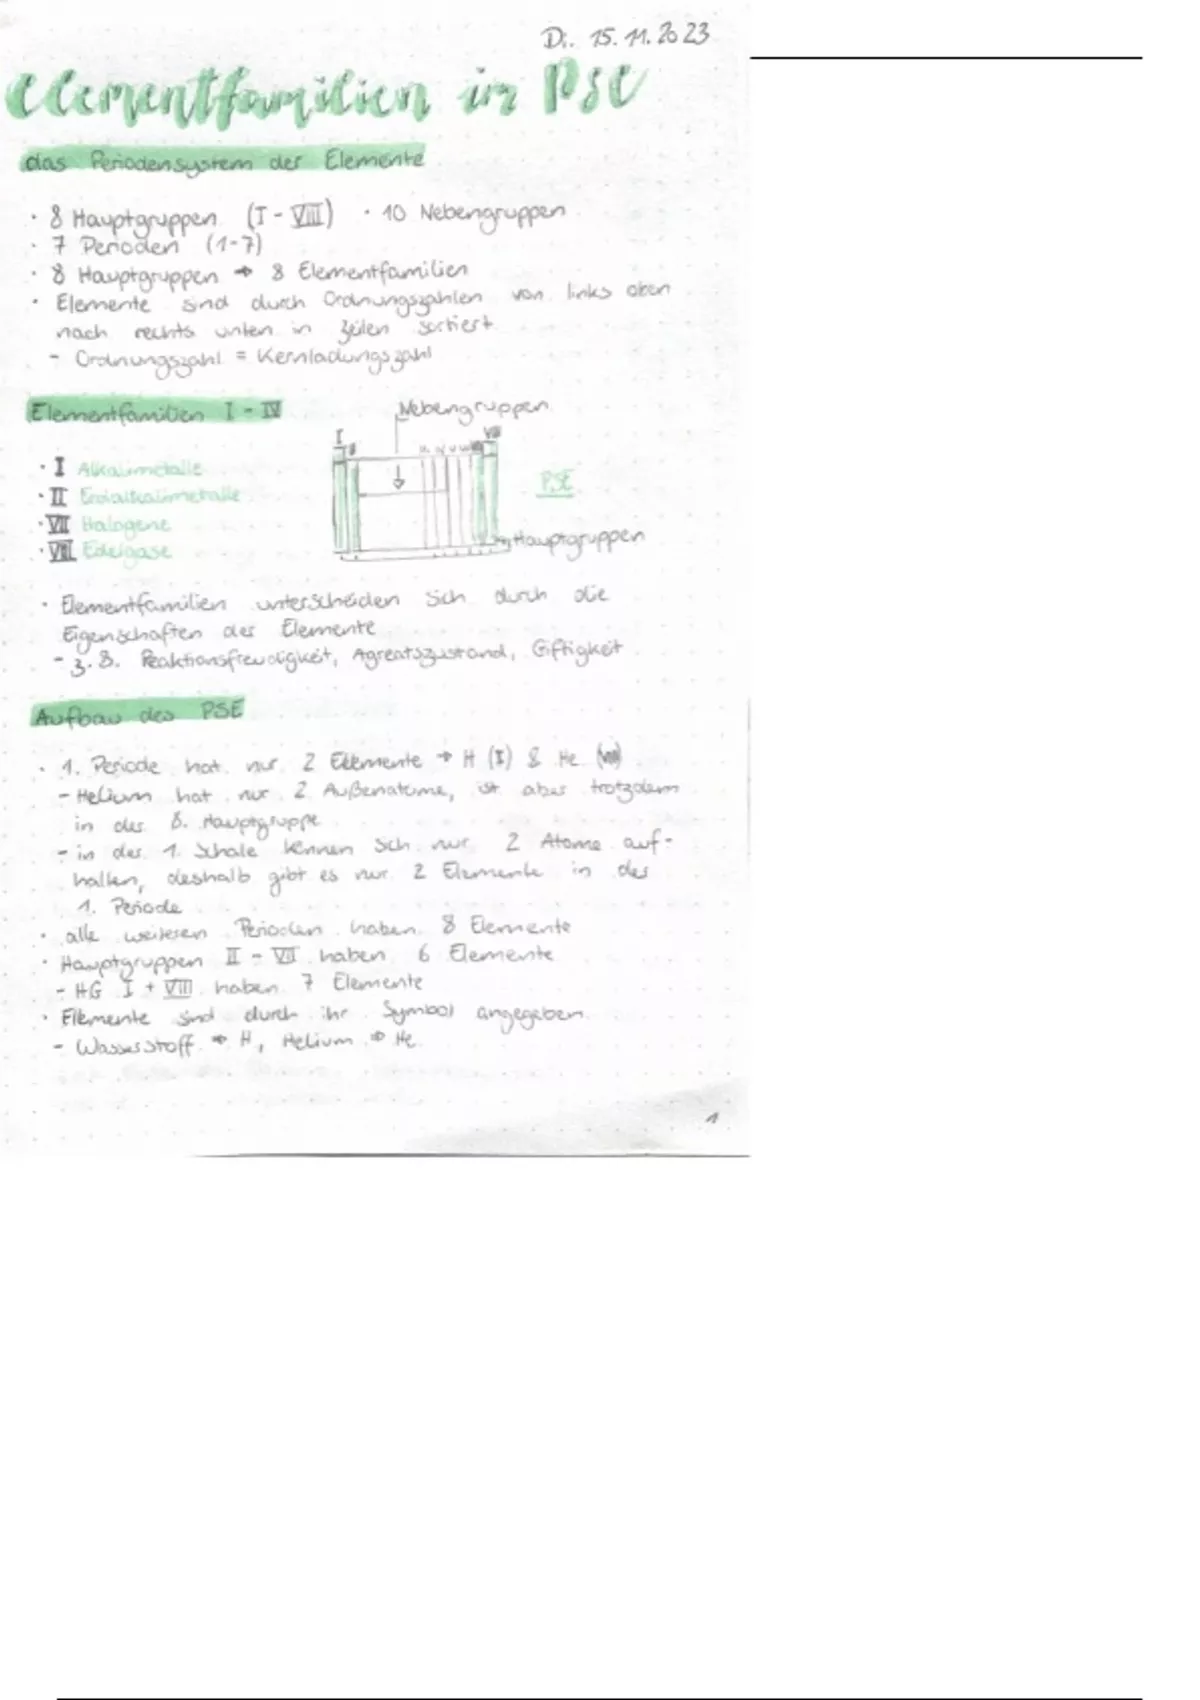 Di. 15.11.2023
Elementfamilien im PSE
das Periodensystem der Elemente
· 8 Hauptgruppen (I - VIII) · 10 Nebengruppen
· 7 Perioden (1-7)
· 8 Hauptgruppen → 8 Elementfamilien
· Elemente sind durch Ordnungszahlen von links oben
nach rechts unten in Zeilen sortiert
- Ordnungszahl = Kernladungszahl
Elementfamilien I - IV
Nebengruppen
I
VIII
· I Alkalimetalle
· II Erdalkalimetalle
· VII Halogene
· VIII Edelgase
PSE
Hauptgruppen
· Elementfamilien unterscheiden sich durch die
Eigenschaften der Elemente
- z.B. Reaktionsfreudigkeit, Agreatszustand, Giftigkeit
Aufbau des PSE
· 1. Periode hat nur 2 Elemente → H (I) & He (VIII)
- Helium hat nur 2 Außenatome, ist aber trotzdem
in der 8. Hauptgruppe
- in der 1. Schale können sich nur 2 Atome auf-
halten, deshalb gibt es nur 2 Elemente in der
1. Periode
· alle weiteren Perioden haben 8 Elemente
· Hauptgruppen II - VII haben 6 Elemente
- HG I + VIII haben 7 Elemente
· Elemente sind durch ihr Symbol angegeben
- Wasserstoff → H, Helium → He
1